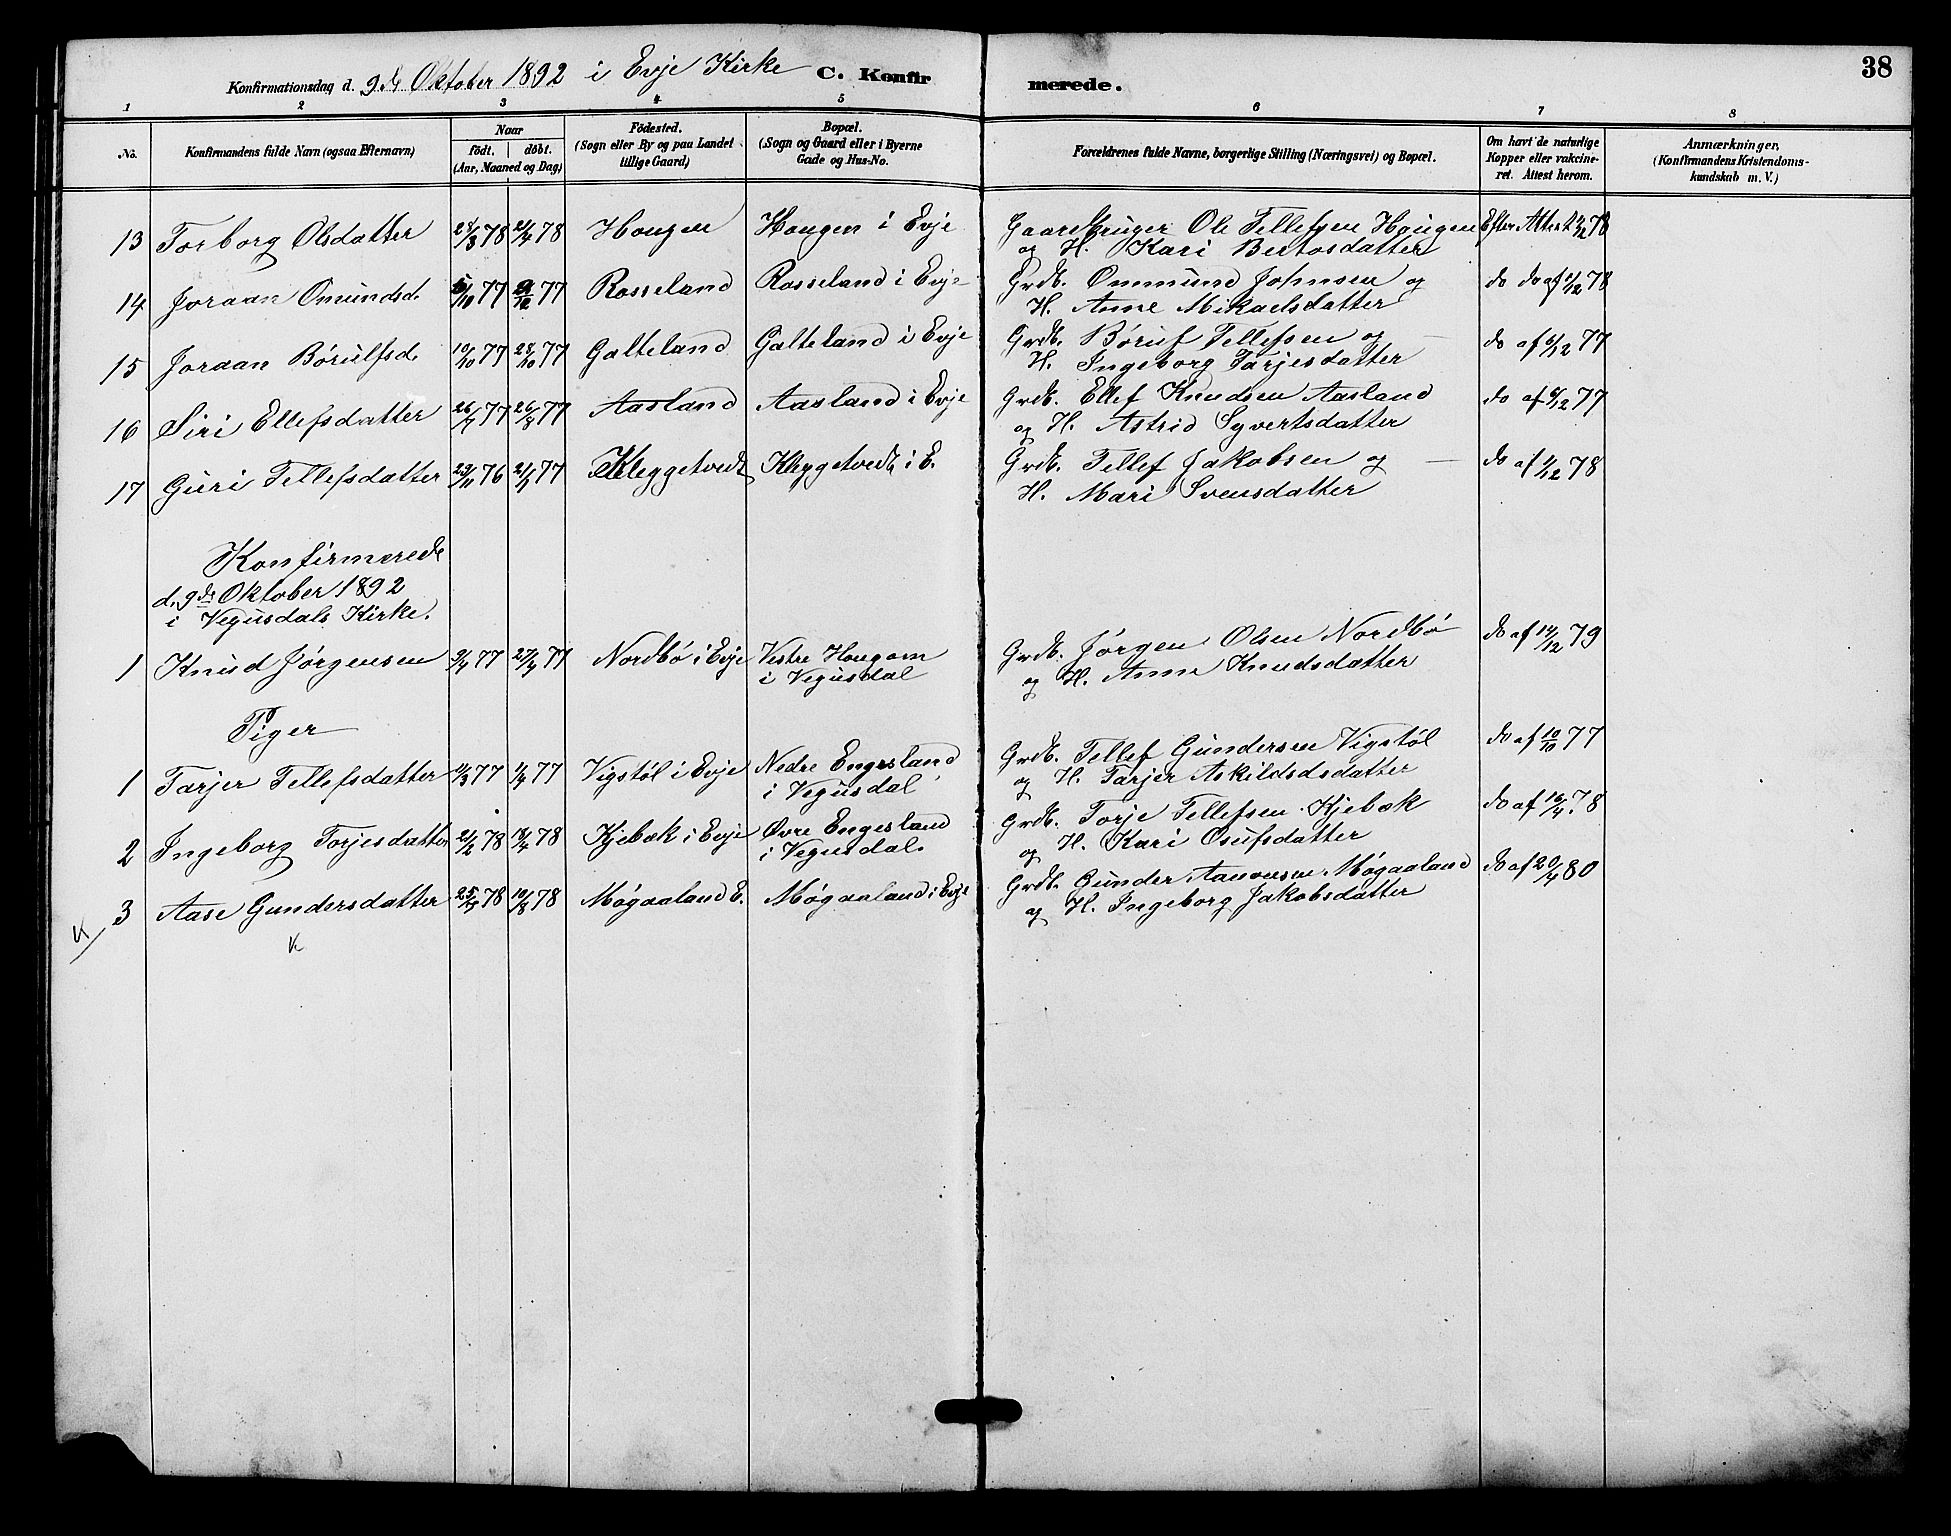 38
Konfirmationsdag d. 9de Oktober 1892 i Evje Kirke C. Konfirmerede.
1 2 3 4 5 6 7 8
No.
Konfirmandens fulde Navn (ogsaa Efternavn)
Naar
födt. döbt.
(Aar, Maaned og Dag)
Födested.
(Sogn eller By og paa Landet
tillige Gaard)
Bopæl.
(Sogn og Gaard eller i Byerne
Gade og Hus-No.
Forældrenes fulde Navne, borgerlige Stilling (Næringsvei) og Bopæl.
Om havt de naturlige
Kopper eller vakcine-
ret. Attest herom.
Anmærkninger,
(Konfirmandens Kristendoms-
kundskab m. V.)
13 Torborg Olsdatter 28/3 78 21/4 78 Hougen Hougen i Evje Gaardbruger Ole Tellefsen Hougen Efter Attest 78
og H. Kari Bertosdatter
14 Joraan Omundsd. 5/10 77 77 Rosseland Rosseland i Evje Grdb. Ommund Johnsen og do do af 1/12 78
H. Anne Mikaelsdatter
15 Joraan Börulfsd. 10/10 77 28/10 77 Galteland Galteland i Evje Grdb. Børuf Tellefsen og do af 6/12 77
H. Ingeborg Tarjesdatter
16 Siri Ellefsdatter 77 77 Aasland Aasland i Evje Grdb. Ellef Knudsen Aasland do af 6/12 77
og H. Astrid Syvertsdatter
17 Guri Tellefsdatter 29/11 76 21/1 77 Kleggetvedt Kleggetvedt i E. Grdb. Tellef Jakobsen og do af 1/12 78
H. Mari Svensdatter
Konfirmerede
d. 9de Oktober 1892
i Vegusdals Kirke.
1 Knud Jørgensen 77 77 Nordbö i Evje Vestre Hougom Grdb. Jørgen Olsen Nordbö do af 14/12 79
i Vegusdal og H. Anne Knudsdatter
Piger
1 Tarjer Tellefsdatter 11/3 77 1/4 77 Vigstöl i Evje Nedre Engesland Grdb. Tellef Gundersen Vigstöl do af 10/10 77
i Vegusdal og H. Tarjer Askildsdsdatter
2 Ingeborg Torjesdatter 21/2 78 78 Kjebæk i Evje Øvre Engesland Grdb. Torje Tellefsen Kjebæk do af 16/4 78
i Vegusdal. og H. Kari Osufsdatter
3 Aase Gundersdatter 78 10/8 78 Møgaaland E. Møgaaland i Evje Grdb. Gunder Aanonsen Møgaaland do af 20/4 80
og H. Ingeborg Jakobsdatter